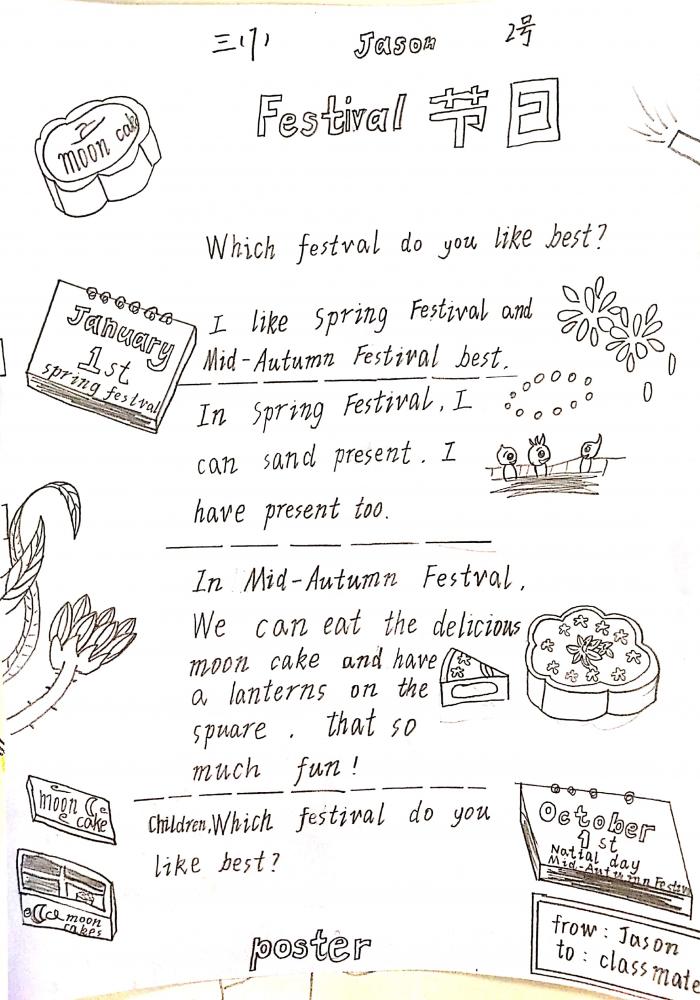 三(1)
Jason
2号
Festival 节日
moon cake
Which festval do you like best?
January
1st
spring festval
I like Spring Festival and
Mid-Autumn Festival best.
In Spring Festival, I
can sand present. I
have present too.
In Mid-Autumn Festval,
We can eat the delicious
moon cake and have
a lanterns on the
spuare. that so
much fun!
Children,Which festival do you
like best?
moon
cake
moon
cakes
October
1st
Natial day
Mid-Autumn Festiv
frow: Jason
to: classmate
poster